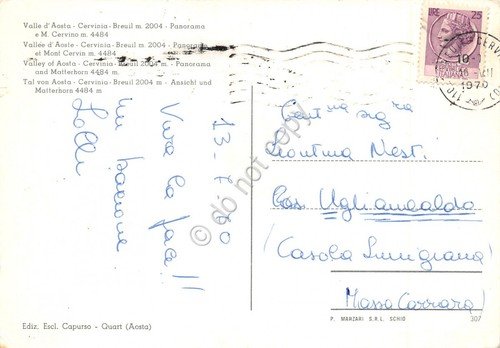 Valle d'Aosta - Cervinia - Breuil m. 2004 - Panorama
e M. Cervino m. 4484
Vallée d'Aoste - Cervinia - Breuil m. 2004 - Panorama
et Mont Cervin m. 4484
Valley of Aosta - Cervinia - Breuil 2004 m. - Panorama
and Matterhorn m. 4484
Tal von Aosta - Cervinia - Breuil 2004 m - Ansicht und
Matterhorn 4484 m
LIRE 25
1970
13-7-70
Viva la foca!!
un bacione
Lolli
Gent.ma sig.ra
Nest.
Cas. Uglianealdo
(Casola Lunigiana)
(Massa Carrara)
do not copy
Ediz. Escl. Capurso - Quart (Aosta)
P. MARZARI S.R.L. SCHIO
307